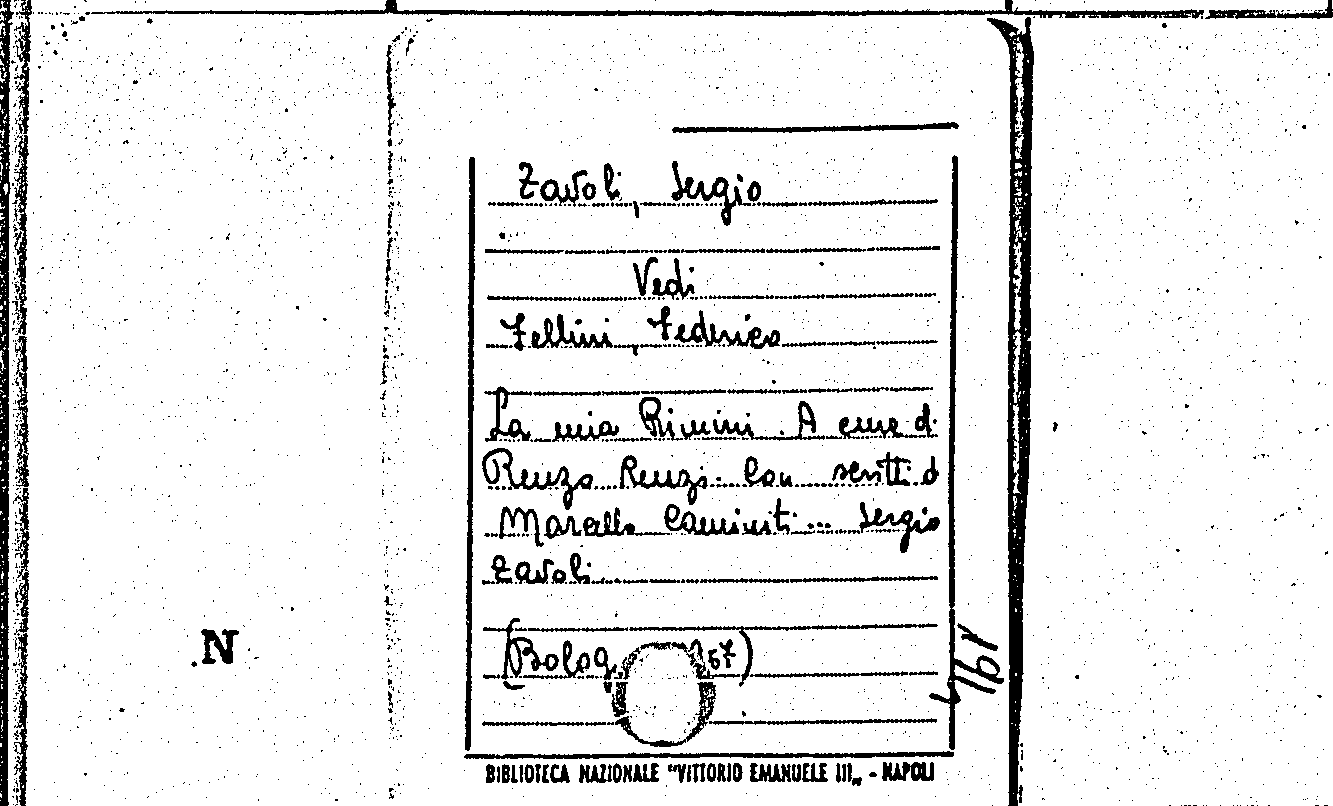 Zavoli, Sergio
Vedi
Fellini, Federico
La mia Rimini. A cura di
Renzo Renzi. Con scritti d
Marcello Caminiti... Sergio
Zavoli
(Bolog 67)
N
BIBLIOTECA NAZIONALE "VITTORIO EMANUELE III„ - NAPOLI